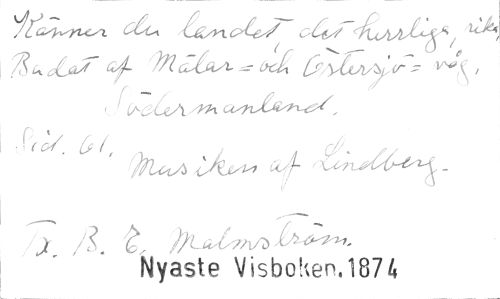 Känner du landet, det herrliga, rika,
Badat af Mälar- och Östersjö-våg,
Södermanland.
Sid. 61.
Musiken af Lindberg.
Tx. B. E. Malmström.
Nyaste Visboken. 1874